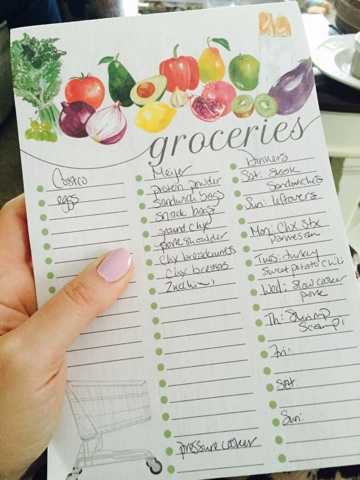 groceries
Costco
eggs
Meijer
protein powder
sandwich bags
snack bags
ground chx
pork shoulder
chx breadcrumbs
chx breasts
zucchini
pressure cooker
Dinners
Sat: steak
sandwiches
Sun: leftovers
Mon: Chx Stx
parmesian
Tues: turkey
sweet potato chili
Wed: slow cooker
pork
Th: Shrimp
Scampi
Fri:
Sat:
Sun: